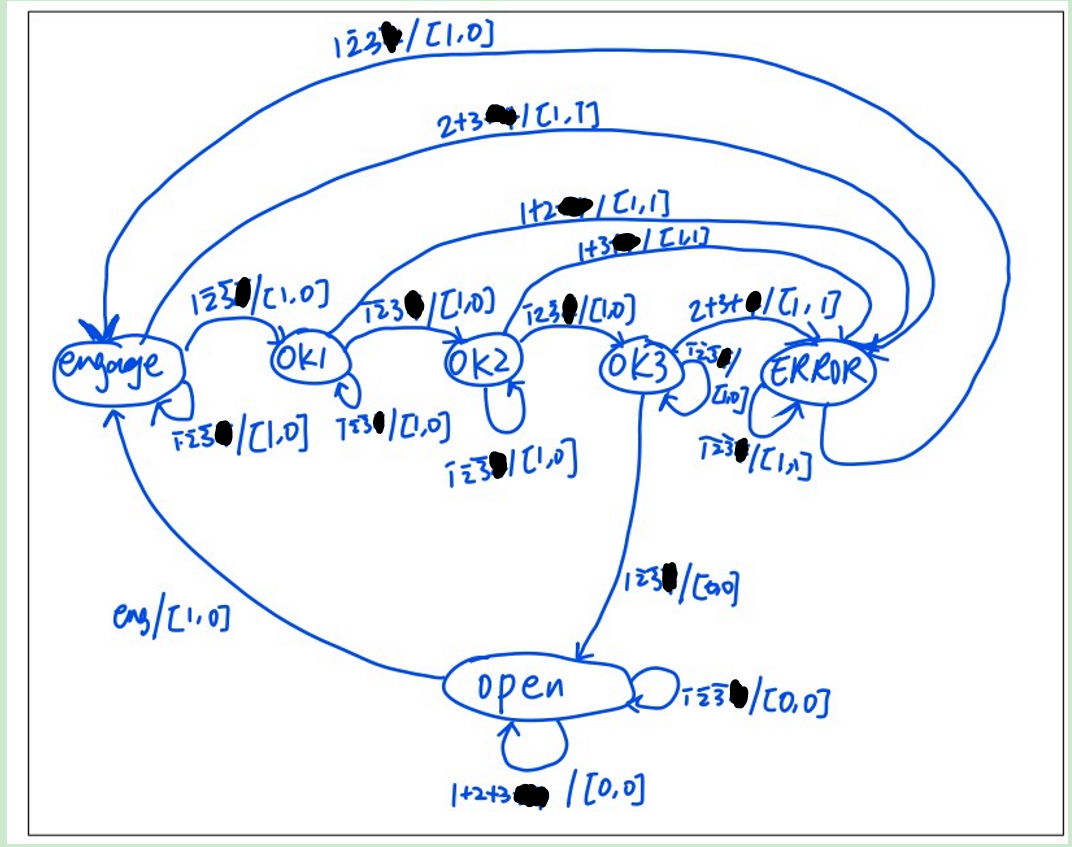 1 2̅ 3 / [1,0]
2+3 / [1,1]
1+2 / [1,1]
1+3 / [1,1]
1 2̅ 3̅ / [1,0]
1̅ 2̅ 3 / [1,0]
1̅ 2 3̅ / [1,0]
2+3+ / [1, 1]
engage
OK1
OK2
OK3
1̅ 2̅ 3̅ /
[1,0]
ERROR
1̅ 2̅ 3̅ / [1,0]
1̅ 2̅ 3̅ / [1,0]
1̅ 2̅ 3̅ / [1,0]
1̅ 2̅ 3̅ / [1,1]
1 2̅ 3̅ / [0,0]
eng/[1,0]
open
1̅ 2̅ 3̅ / [0,0]
1+2+3 / [0,0]